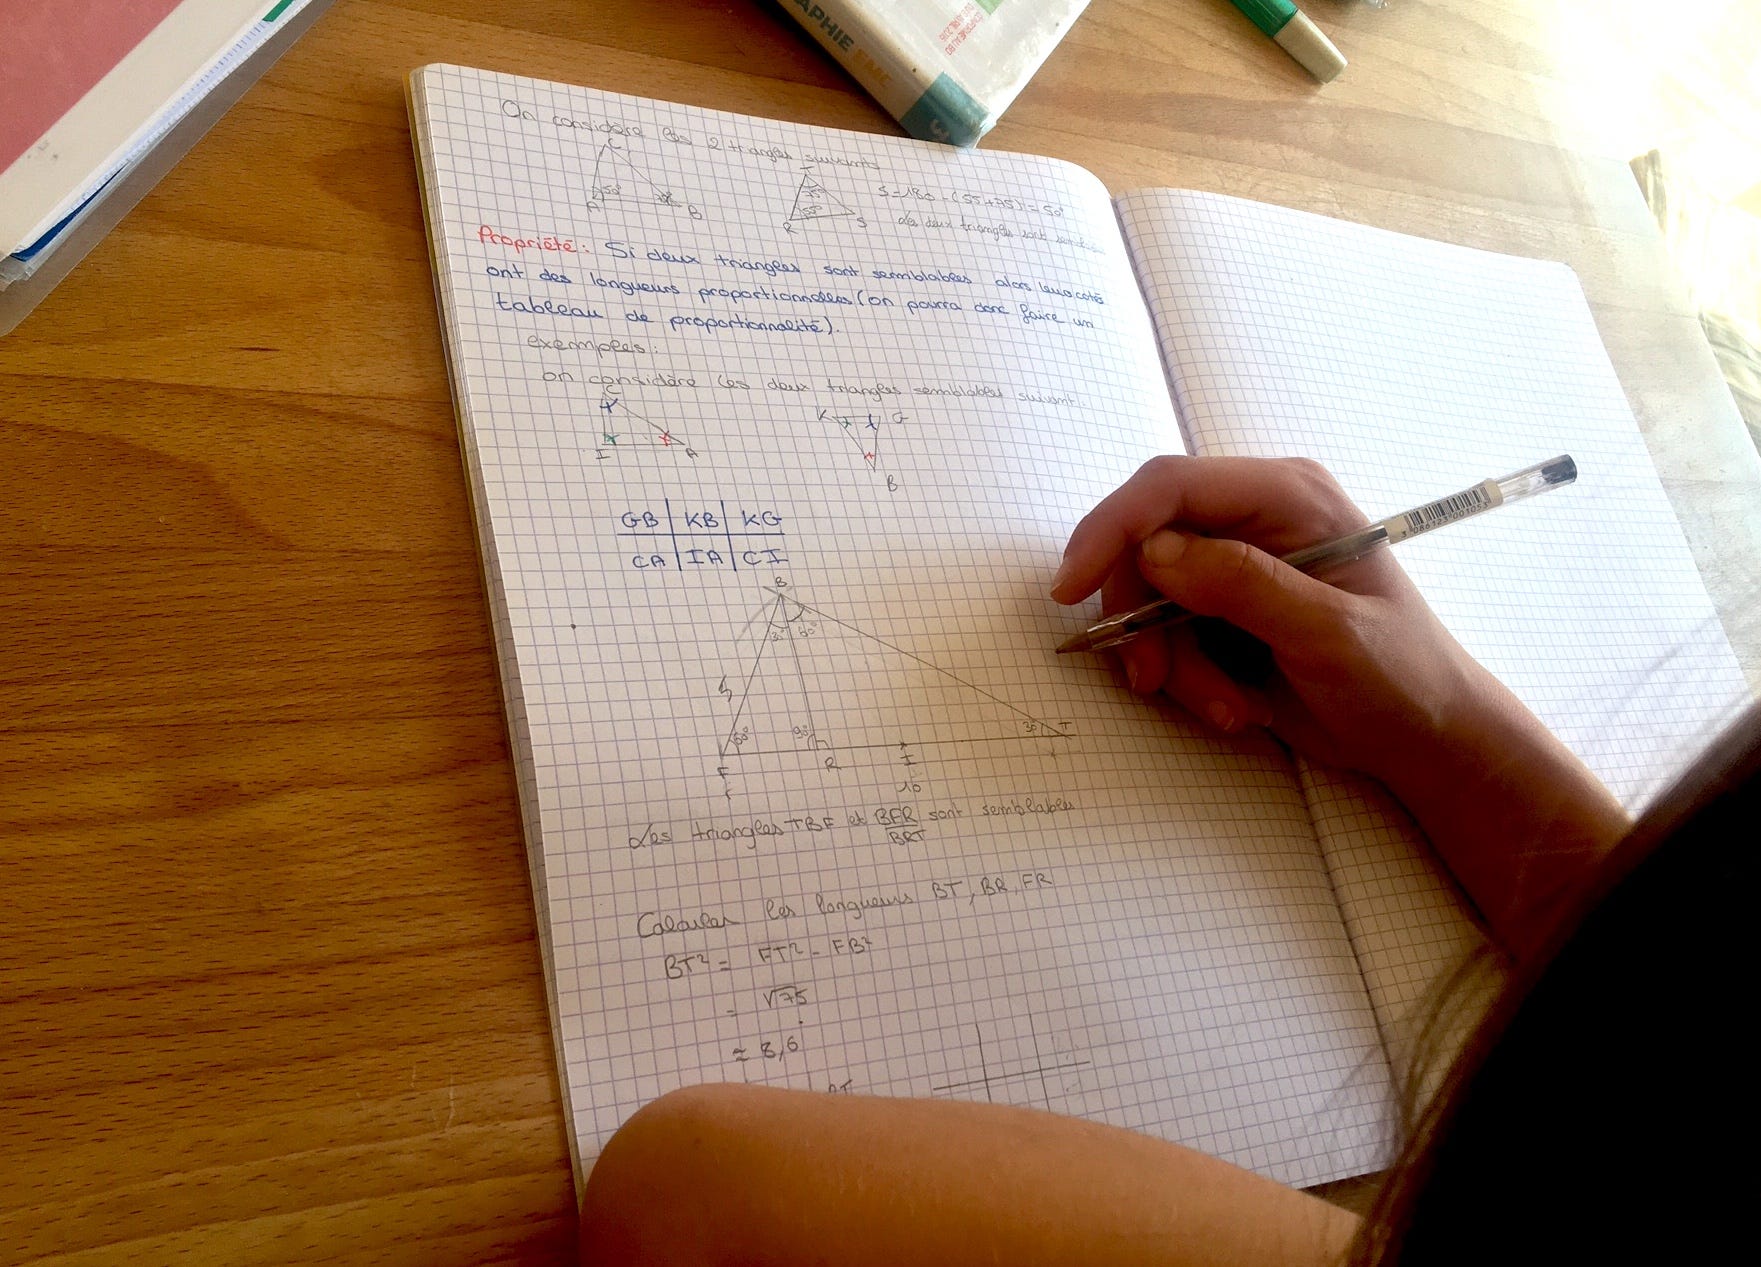 APHIE EMC
3
On considère les 2 triangles suivants
C
50°
A
B
T
75°
55°
R
S
S = 180 - (55+75) = 50°
les deux triangles sont
Propriété: Si deux triangles sont semblables alors leurs cotés
ont des longueurs proportionnelles (on pourra donc faire un
tableau de proportionnalité).
exemples:
on considère les deux triangles semblables suivant.
C
I
A
K
G
B
GB | KB | KG
CA | IA | CI
B
30°
60°
5
60°
90°
30°
T
F
R
I
10
Les triangles TBF et BFR sont semblables
BRT
Calculer les longueurs BT, BR, FR
BT² = FT² - FB²
= √75
≈ 8,6
3086123001053